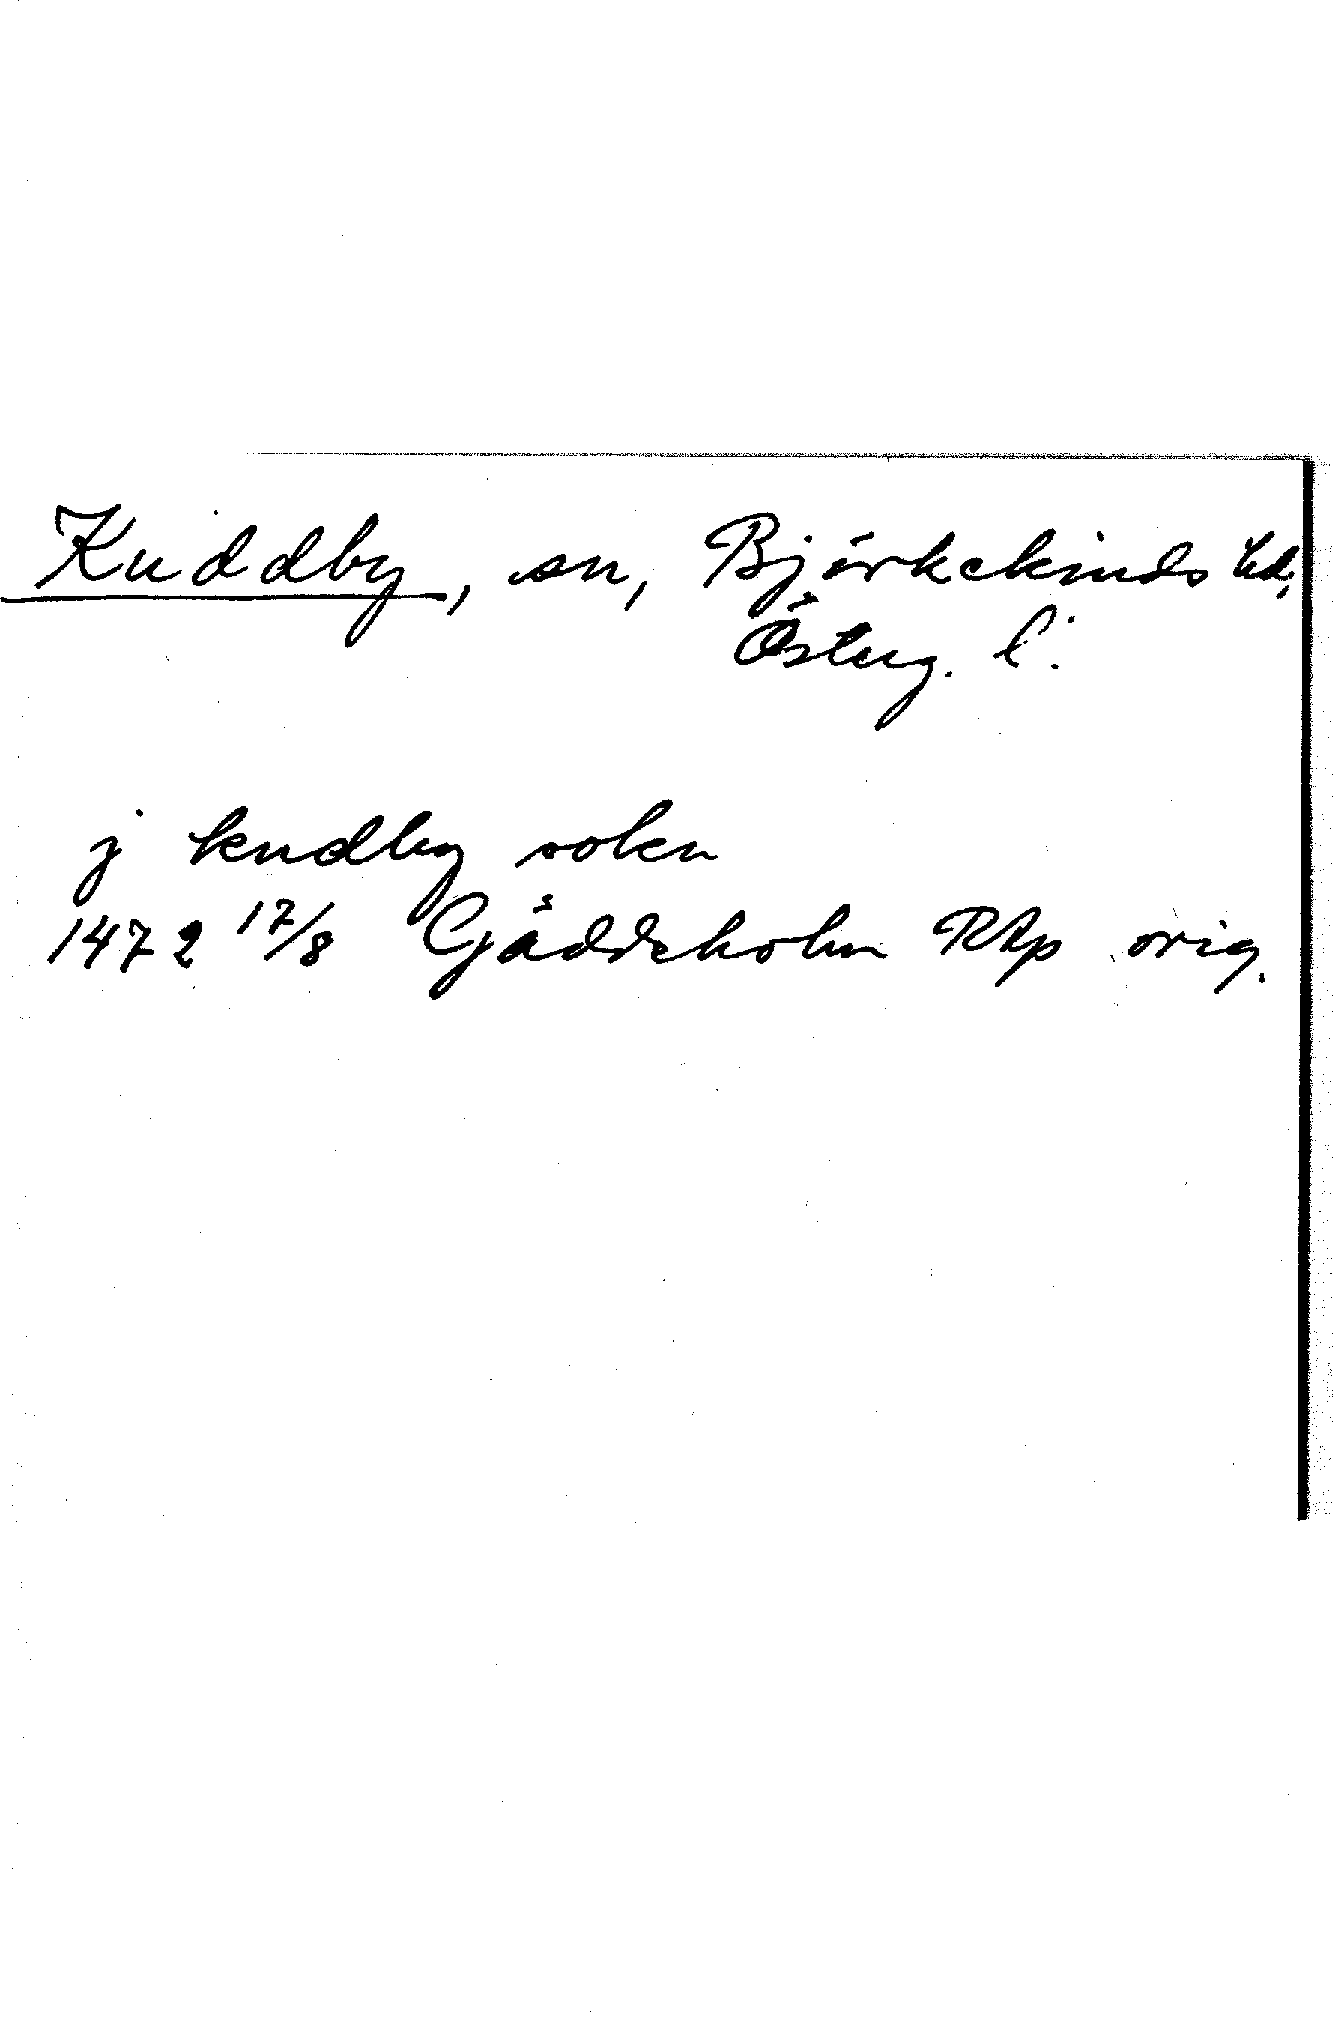 Kuddby, sn, Björkekinds hd,
Österg. l.
j kudby soken
1472 17/8 Gäddeholm RAp orig.